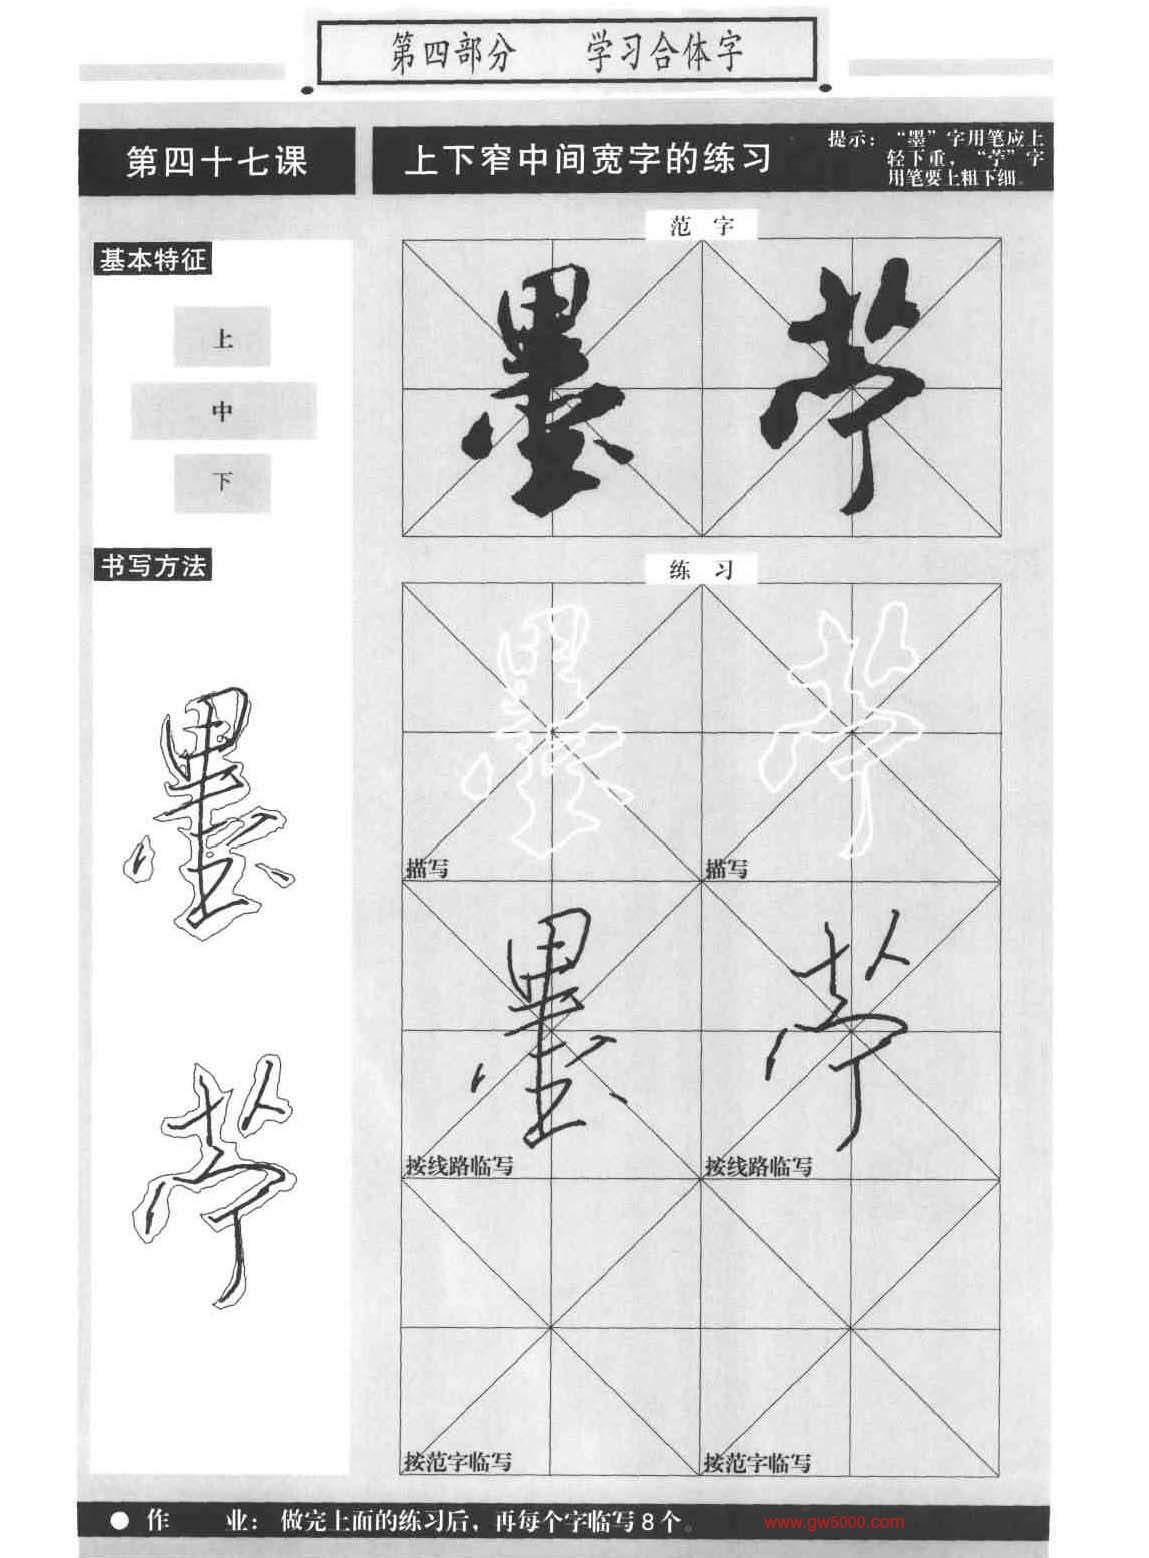 第四部分 学习合体字
第四十七课
上下窄中间宽字的练习
提示：“墨”字用笔应上
轻下重，“苧”字
用笔要上粗下细。
基本特征
上
中
下
书写方法
墨
苧
范 字
墨 苧
练 习
墨 苧
描写 描写
墨 苧
按线路临写 按线路临写
按范字临写 按范字临写
● 作 业：做完上面的练习后，再每个字临写8个。
www.gw5000.com